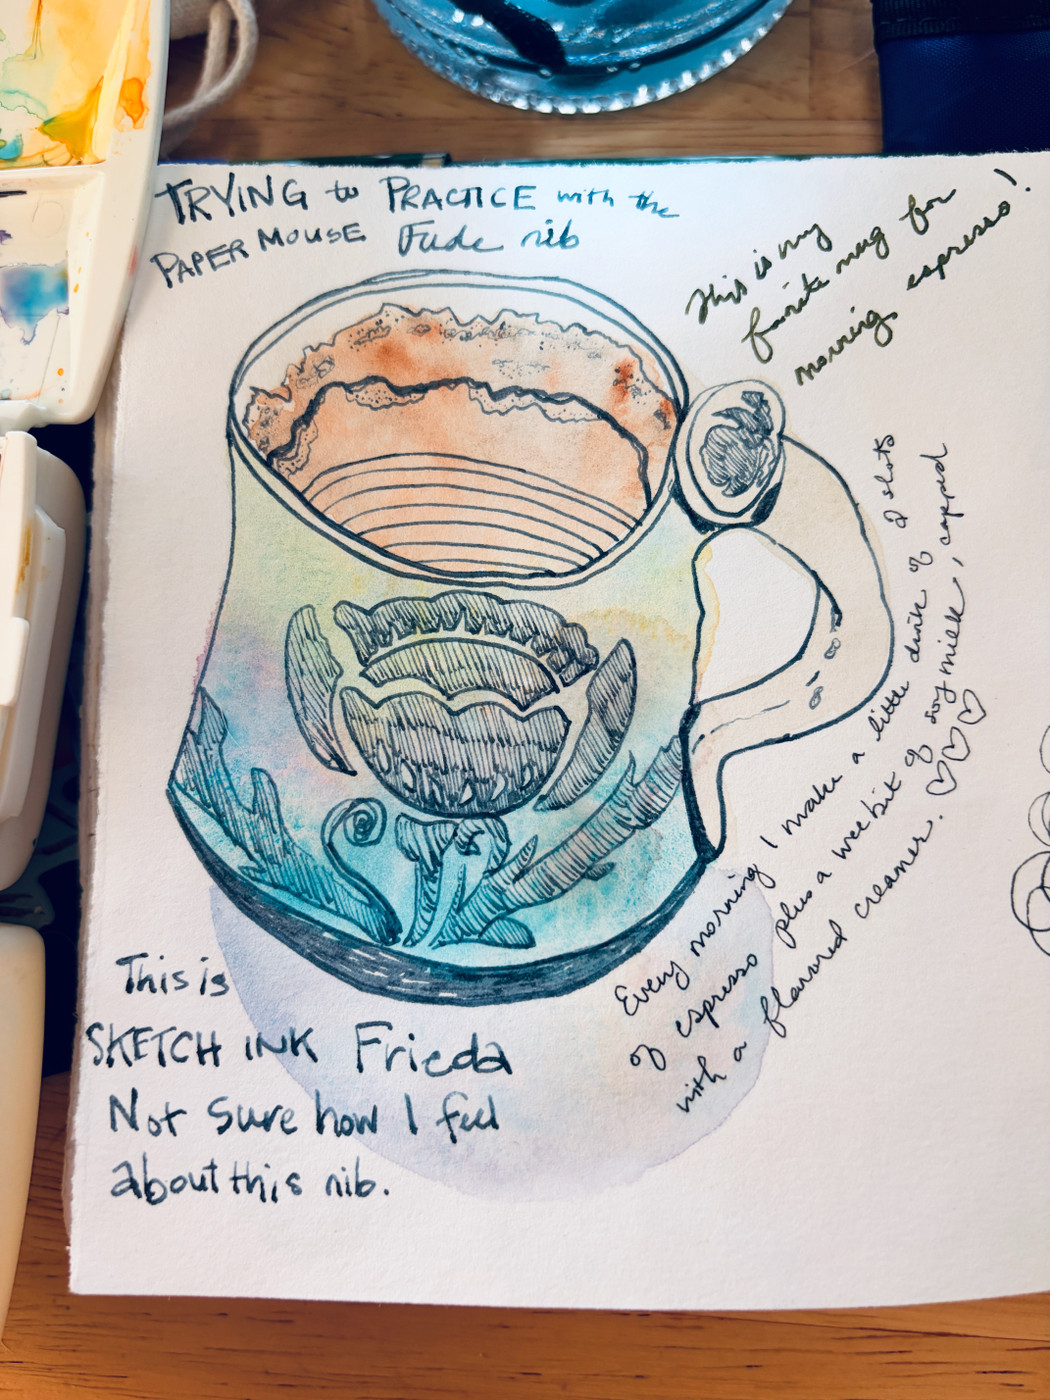 TRYING to PRACTICE with the
PAPER MOUSE Fude nib
This is my
favorite mug for
morning espresso!
Every morning I make a little drink of 2 shots
of espresso plus a wee bit of soy milk, capped
with a flavored creamer. ♡♡♡
This is
SKETCH INK Frieda
Not Sure how I feel
about this nib.